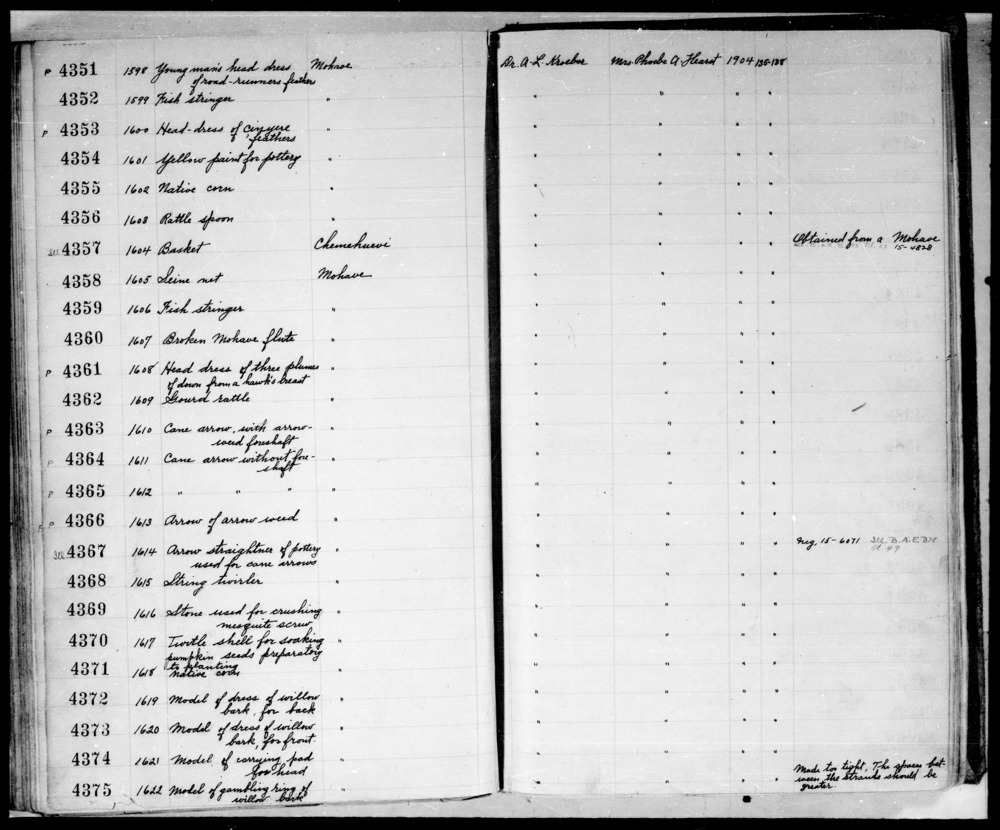 P 4351 1598 Young man's head dress Mohave Dr. A. L. Kroeber Mrs. Phoebe A. Hearst 1904 135-138
of road-runners feather
4352 1599 Fish stringer " " " " "
P 4353 1600 Head-dress of " " " " "
feathers
4354 1601 Yellow paint for pottery " " " " "
4355 1602 Native corn " " " " "
4356 1603 Rattle spoon " " " " "
Ill. 4357 1604 Basket Chemehuevi " " " " Obtained from a Mohave
15-4828
4358 1605 Seine net Mohave " " " "
4359 1606 Fish stringer " " " " "
4360 1607 Broken Mohave flute " " " " "
P 4361 1608 Head dress of three plumes " " " " "
of down from a hawk's breast
4362 1609 Gourd rattle " " " " "
P 4363 1610 Cane arrow, with arrow- " " " " "
weed foreshaft
P 4364 1611 Cane arrow without fore- " " " " "
shaft
P 4365 1612 " " " " " " " "
P 4366 1613 Arrow of arrow weed " " " " "
Ill. 4367 1614 Arrow straightner of pottery " " " " " Neg. 15-6071 Ill. B.A.E. B78
used for cane arrows pl. 49
4368 1615 String twirler " " " " "
4369 1616 Stone used for crushing " " " " "
mesquite screw
4370 1617 Turtle shell for soaking " " " " "
pumpkin seeds preparatory
to planting
4371 1618 Native corn " " " " "
4372 1619 Model of dress of willow " " " " "
bark, for back
4373 1620 Model of dress of willow " " " " "
bark, for front.
4374 1621 Model of carrying pad " " " " "
for head
4375 1622 Model of gambling ring of " " " " " Made too tight. The spaces bet-
willow bark ween the strands should be
greater.